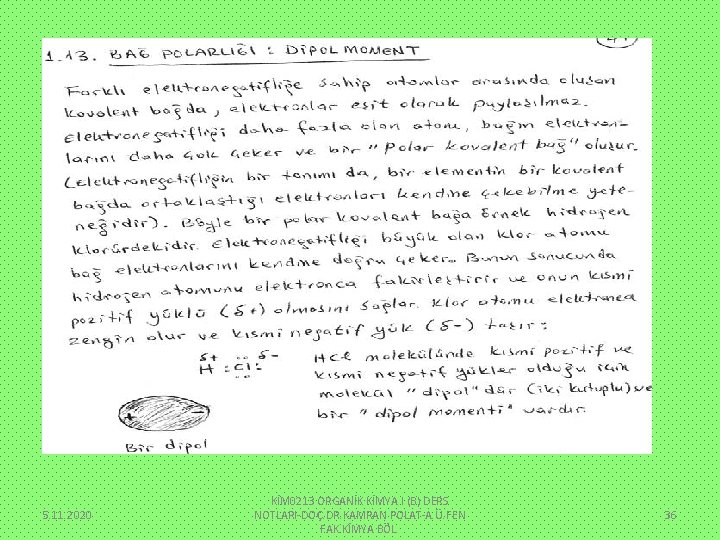 1.13. BAĞ POLARLIĞI : DİPOL MOMENT
Farklı elektronegatifliğe sahip atomlar arasında oluşan
kovalent bağda, elektronlar eşit olarak paylaşılmaz.
Elektronegatifliği daha fazla olan atom, bağın elektron-
larını daha çok çeker ve bir "polar kovalent bağ" oluşur.
(Elektronegatifliğin bir tanımı da, bir elementin bir kovalent
bağda ortaklaştığı elektronları kendine çekebilme yete-
neğidir). Böyle bir polar kovalent bağa örnek hidrojen
klorürdekidir. Elektronegatifliği büyük olan klor atomu
bağ elektronlarını kendine doğru çeker. Bunun sonucunda
hidrojen atomunu elektronca fakirleştirir ve onun kısmi
pozitif yüklü (δ+) olmasını sağlar. Klor atomu elektronca
zengin olur ve kısmi negatif yük (δ-) taşır:
δ+ δ-
H :Cl:
HCl molekülünde kısmi pozitif ve
kısmi negatif yükler olduğu için
molekül "dipol"dür (iki kutuplu) ve
bir "dipol momenti" vardır.
+ -
Bir dipol
5.11.2020
KİM0213 ORGANİK KİMYA I (B) DERS
NOTLARI-DOÇ.DR.KAMRAN POLAT-A.Ü.FEN
FAK.KİMYA BÖL
36